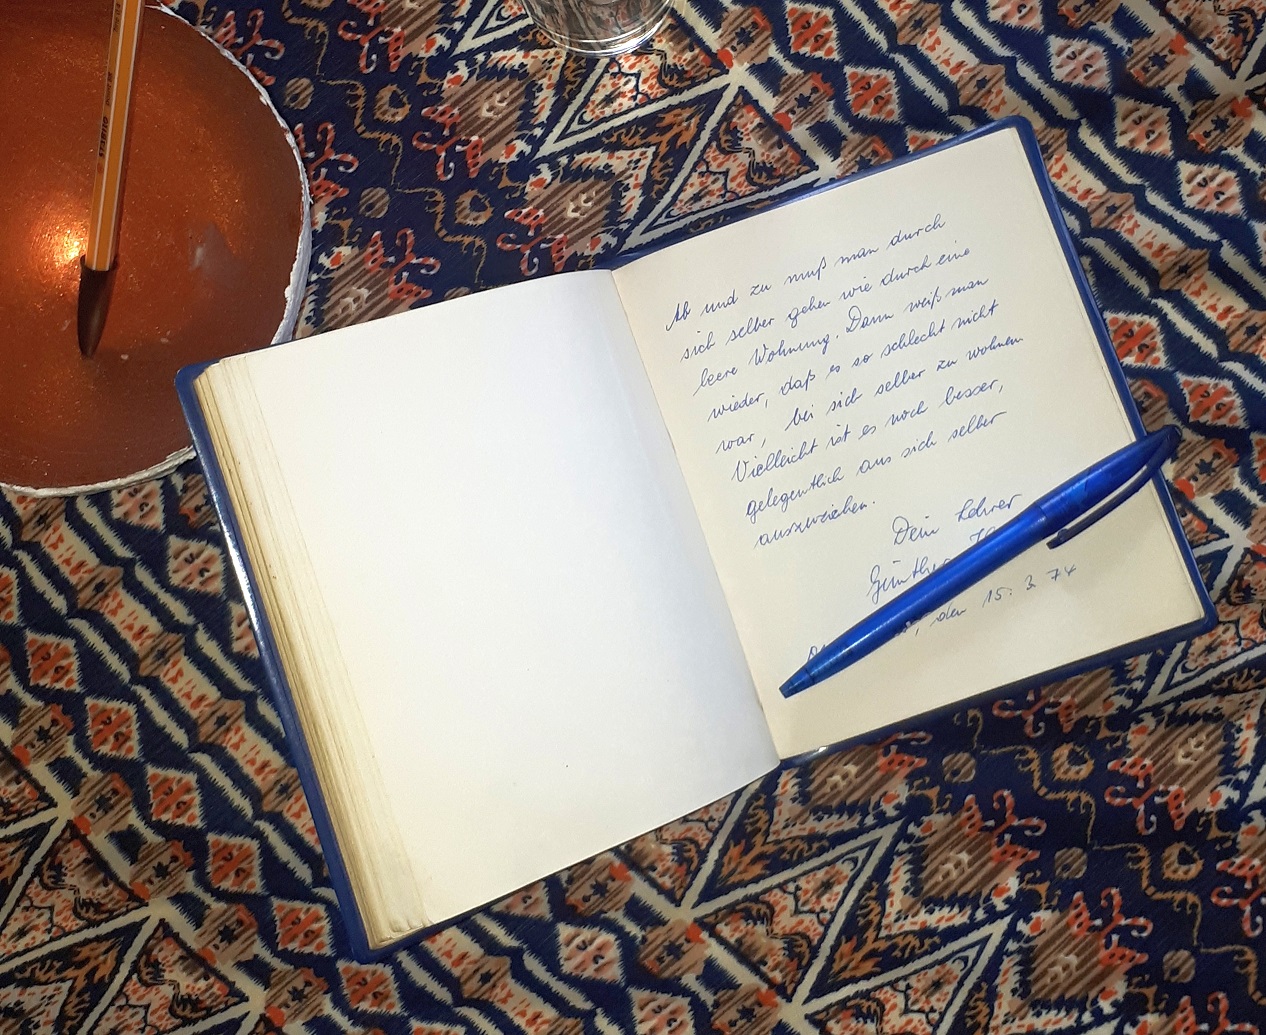 Ab und zu muß man durch
sich selber gehen wie durch eine
leere Wohnung. Dann weiß man
wieder, daß es so schlecht nicht
war, bei sich selber zu wohnen
Vielleicht ist es noch besser,
gelegentlich aus sich selber
auszuziehen.
Dein Lehrer
Günther
, den 15. 3. 74